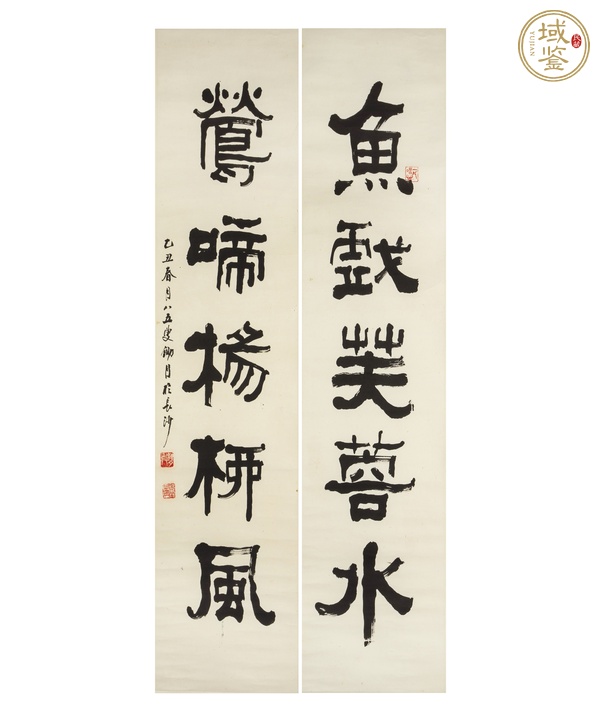 魚戲芙蓉水
鶯啼楊柳風
乙丑春月八五叟鋤月於長沙
域鉴
YUJIAN